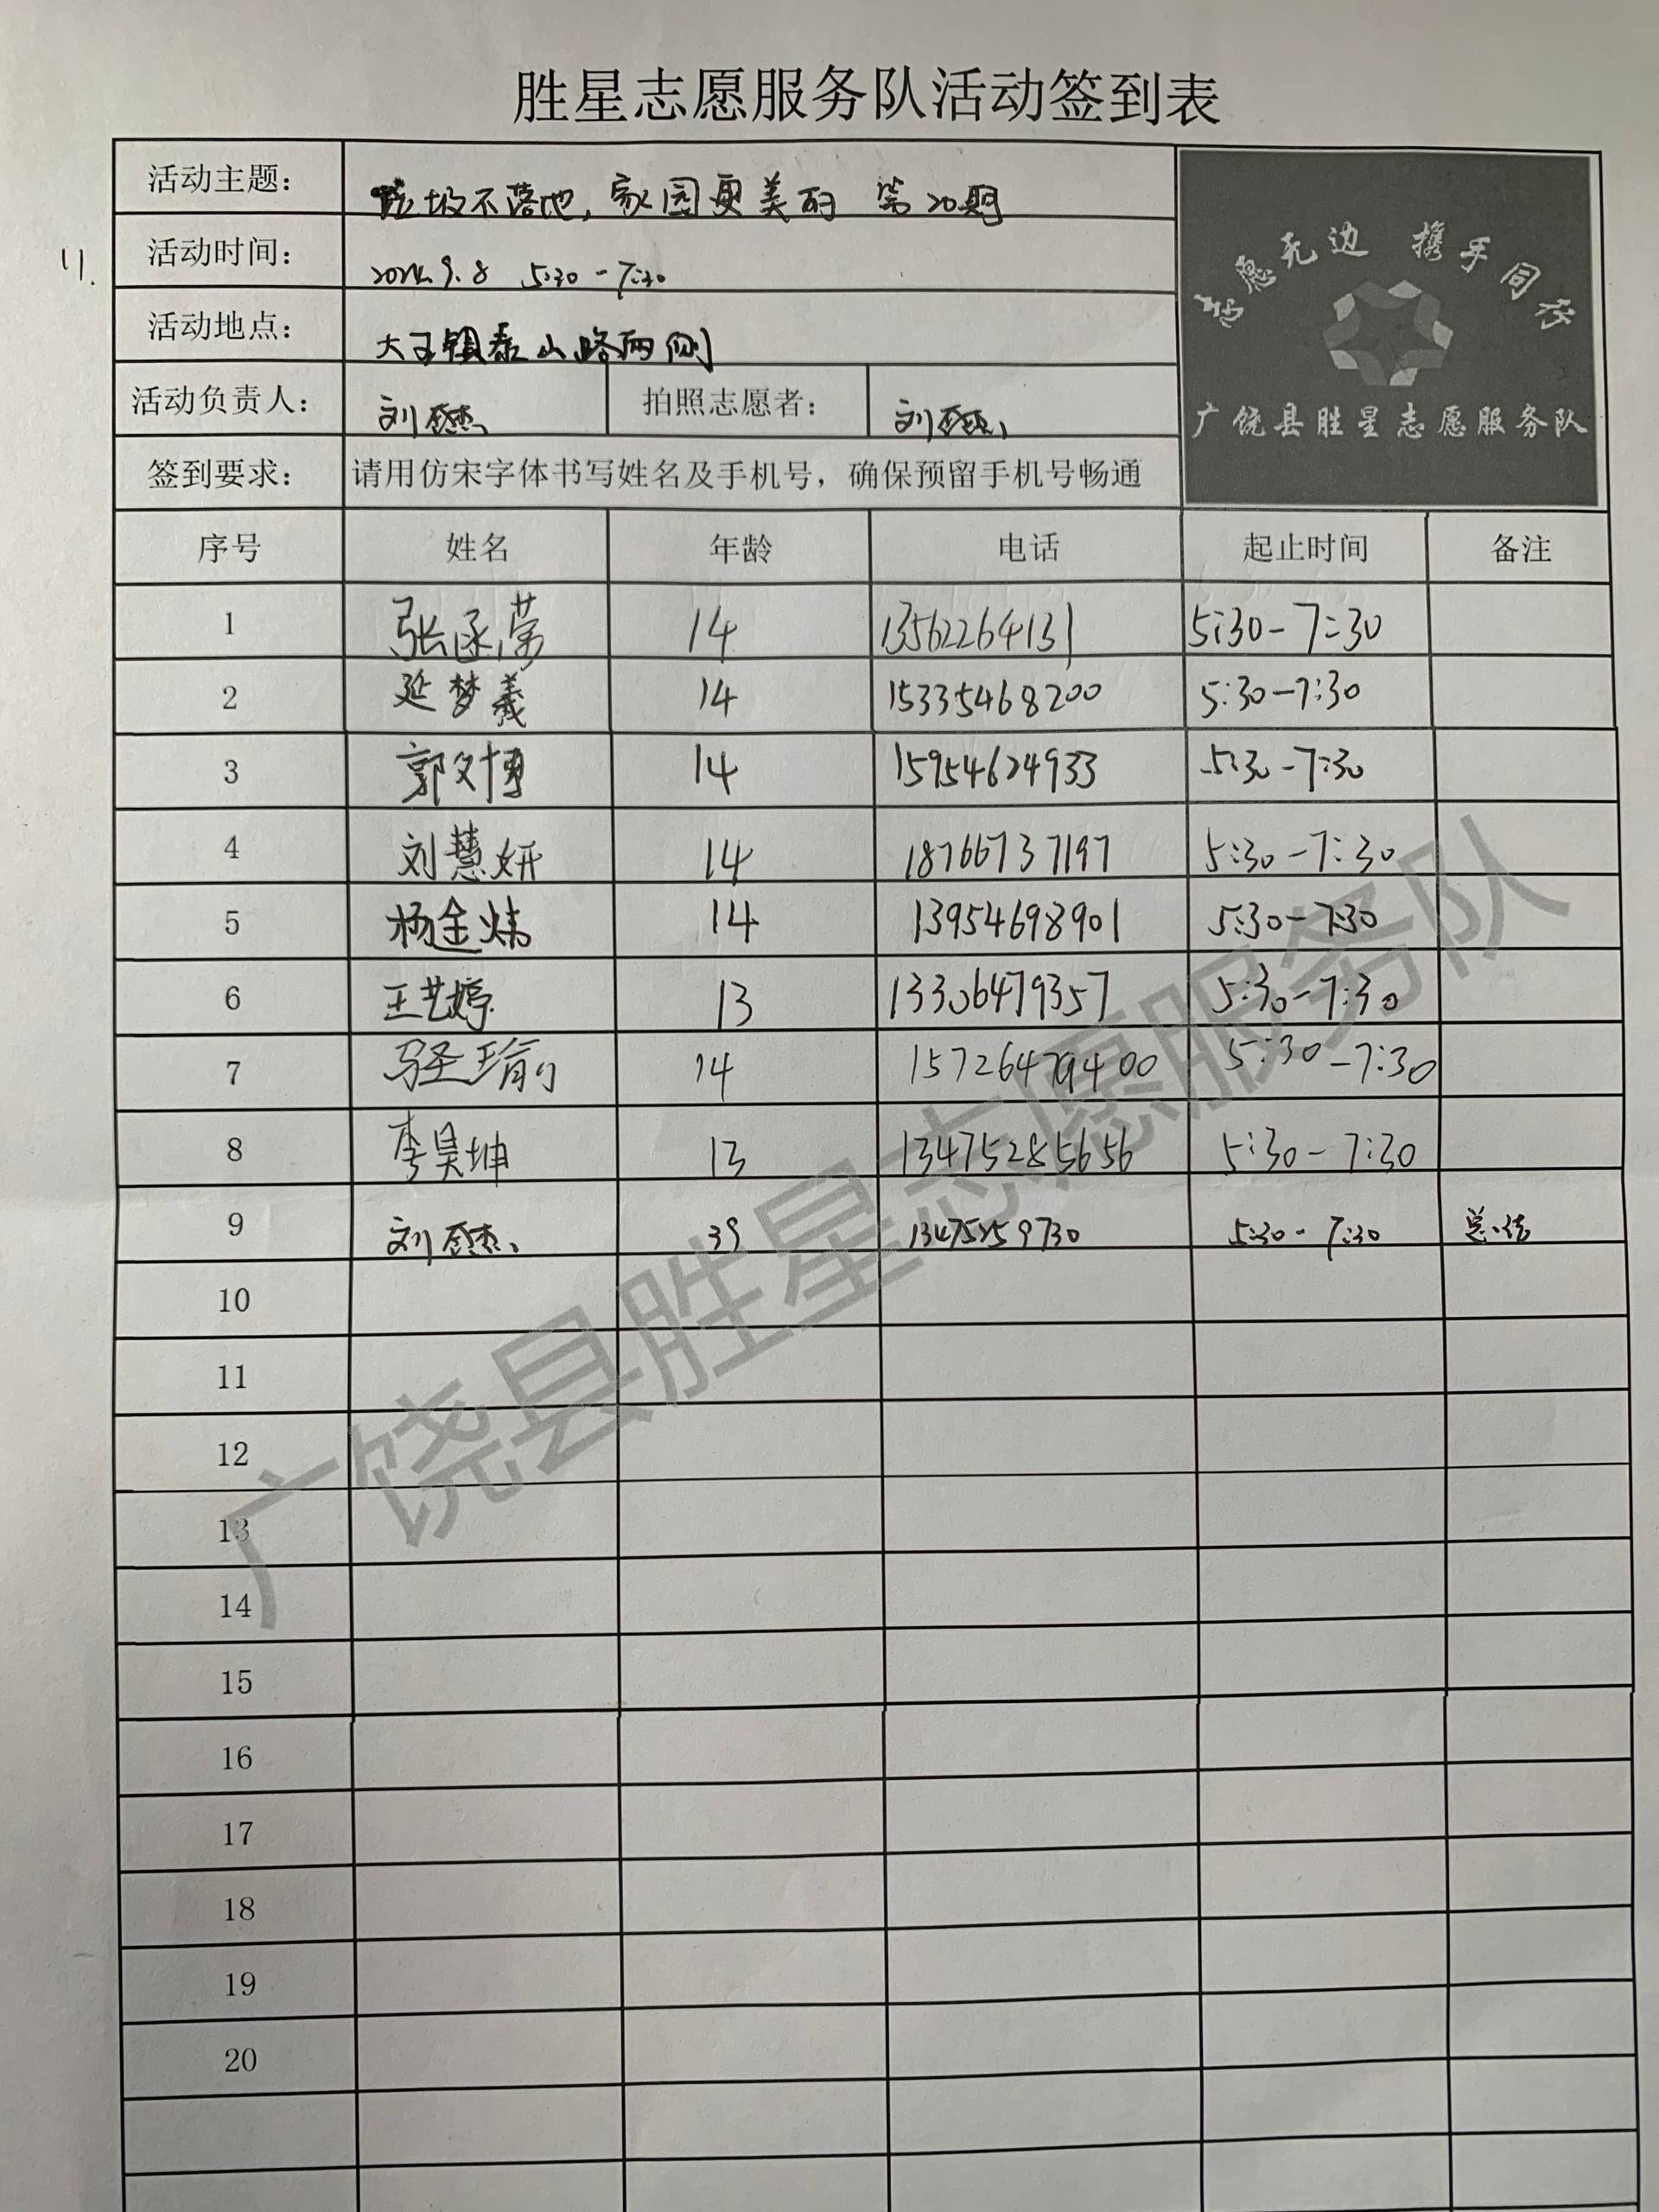 胜星志愿服务队活动签到表
活动主题： 垃圾不落地，家园更美丽 第20期
活动时间： 2024.9.8 5:30-7:30
活动地点： 大王镇泰山路两侧
活动负责人： 刘 拍照志愿者： 刘
签到要求： 请用仿宋字体书写姓名及手机号，确保预留手机号畅通
志愿无边 携手同行
广饶县胜星志愿服务队
序号 姓名 年龄 电话 起止时间 备注
1 张函荣 14 13562264131 5:30-7:30
2 延梦羲 14 15335468200 5:30-7:30
3 郭文博 14 15954624933 5:30-7:30
4 刘慧妍 14 18766737197 5:30-7:30
5 杨金炜 14 13954698901 5:30-7:30
6 王艺婷 13 13306479357 5:30-7:30
7 马圣瑜 14 5:30-7:30
8 李昊坤 13 13475285656 5:30-7:30
9 刘 39 13475259730 5:30-7:30 总结
10
11
12
13
14
15
16
17
18
19
20
广饶县胜星志愿服务队